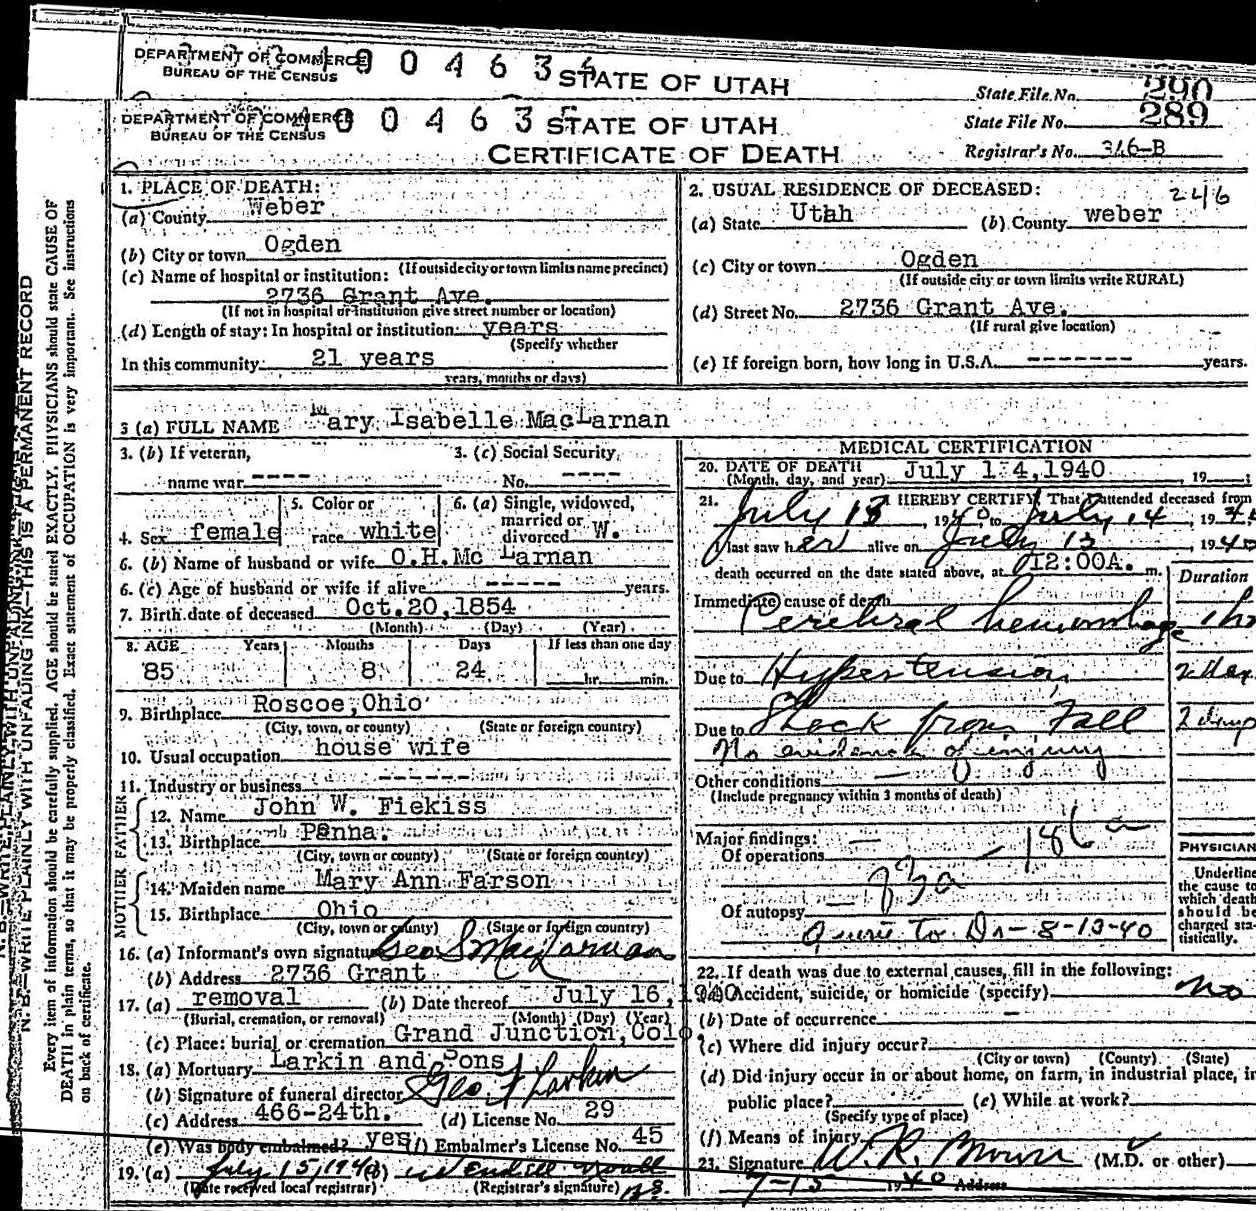 DEPARTMENT OF COMMERCE
BUREAU OF THE CENSUS
STATE OF UTAH
State File No. 290
DEPARTMENT OF COMMERCE
BUREAU OF THE CENSUS
STATE OF UTAH
CERTIFICATE OF DEATH
State File No. 289
Registrar's No. 346-B
N. B.—WRITE PLAINLY WITH UNFADING INK—THIS IS A PERMANENT RECORD
Every item of information should be carefully supplied. AGE should be stated EXACTLY. PHYSICIANS should state CAUSE OF
DEATH in plain terms, so that it may be properly classified. Exact statement of OCCUPATION is very important. See instructions
on back of certificate.
1. PLACE OF DEATH:
(a) County Weber
(b) City or town Ogden
(If outside city or town limits name precinct)
(c) Name of hospital or institution:
2736 Grant Ave.
(If not in hospital or institution give street number or location)
(d) Length of stay: In hospital or institution years
(Specify whether
In this community 21 years
years, months or days)
2. USUAL RESIDENCE OF DECEASED: 246
(a) State Utah (b) County weber
(c) City or town Ogden
(If outside city or town limits write RURAL)
(d) Street No. 2736 Grant Ave.
(If rural give location)
(e) If foreign born, how long in U.S.A. ------- years.
3 (a) FULL NAME Mary Isabelle MacLarnan
3. (b) If veteran,
name war ----
3. (c) Social Security
No. ----
4. Sex female
5. Color or
race white
6. (a) Single, widowed,
married or
divorced W.
6. (b) Name of husband or wife O.H.Mc Larnan
6. (c) Age of husband or wife if alive ----- years.
7. Birth date of deceased Oct.20,1854
(Month) (Day) (Year)
8. AGE Years Months Days If less than one day
85 8 24 hr. min.
9. Birthplace Roscoe,Ohio
(City, town, or county) (State or foreign country)
10. Usual occupation house wife
11. Industry or business ------
FATHER
12. Name John W. Fiekiss
13. Birthplace Penna.
(City, town or county) (State or foreign country)
MOTHER
14. Maiden name Mary Ann Farson
15. Birthplace Ohio
(City, town or county) (State or foreign country)
16. (a) Informant's own signature Geo S MacLarnan
(b) Address 2736 Grant
17. (a) removal (b) Date thereof July 16, 1940
(Burial, cremation, or removal) (Month) (Day) (Year)
(c) Place: burial or cremation Grand Junction,Colo.
18. (a) Mortuary Larkin and Sons
(b) Signature of funeral director Geo F Larkin
(c) Address 466-24th. (d) License No. 29
(e) Was body embalmed? yes (f) Embalmer's License No. 45
19. (a) July 15, 1940 (b)
(Date received local registrar) (Registrar's signature)
MEDICAL CERTIFICATION
20. DATE OF DEATH
(Month, day, and year) July 14,1940 , 19 ;
21. I HEREBY CERTIFY, That I attended deceased from
July 13, 1940 to July 14, 1940
I last saw her alive on July 13, 1940
death occurred on the date stated above, at 12:00A. m.
Duration
Immediate cause of death
Cerebral hemorrhage 1 hr
Due to Hypertension
Due to Shock from Fall 2 days
No evidence of injury
Other conditions —
(Include pregnancy within 3 months of death)
Major findings:
Of operations —
186a
83a
Of autopsy
Querie to Dr - 8-13-40
PHYSICIAN
Underline
the cause to
which death
should be
charged sta-
tistically.
22. If death was due to external causes, fill in the following:
(a) Accident, suicide, or homicide (specify) no
(b) Date of occurrence —
(c) Where did injury occur?
(City or town) (County) (State)
(d) Did injury occur in or about home, on farm, in industrial place, in
public place? (e) While at work?
(Specify type of place)
(f) Means of injury
23. Signature W. R. Brown (M.D. or other)
7-15 1940 Address